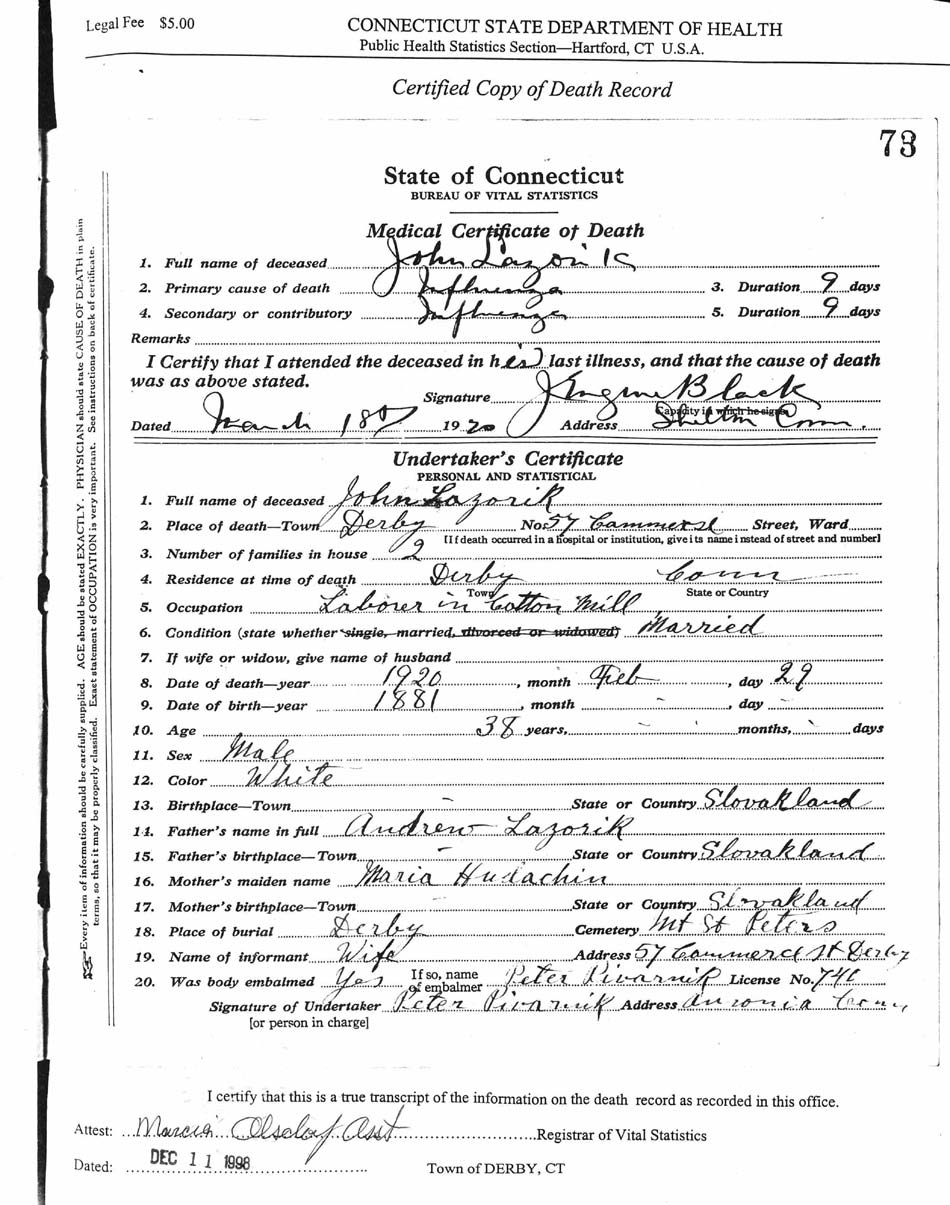 Legal Fee $5.00
CONNECTICUT STATE DEPARTMENT OF HEALTH
Public Health Statistics Section—Hartford, CT U.S.A.
Certified Copy of Death Record
73
State of Connecticut
BUREAU OF VITAL STATISTICS
Medical Certificate of Death
1. Full name of deceased John Lazorik
2. Primary cause of death Influenza 3. Duration 9 days
4. Secondary or contributory Influenza 5. Duration 9 days
Remarks
I Certify that I attended the deceased in his last illness, and that the cause of death
was as above stated.
Signature Black
Capacity in which he signs
Dated March 18 1920 Address Shelton Conn.
Undertaker's Certificate
PERSONAL AND STATISTICAL
1. Full name of deceased John Lazorik
2. Place of death—Town Derby No. 57 Commerse Street, Ward
[If death occurred in a hospital or institution, give its name instead of street and number]
3. Number of families in house 2
4. Residence at time of death Derby Conn
Town State or Country
5. Occupation Laborer in Cotton Mill
6. Condition (state whether single, married, divorced or widowed) Married
7. If wife or widow, give name of husband
8. Date of death—year 1920, month Feb, day 29
9. Date of birth—year 1881, month -, day -
10. Age 38 years, - months, - days
11. Sex Male
12. Color White
13. Birthplace—Town - State or Country Slovakland
14. Father's name in full Andrew Lazorik
15. Father's birthplace—Town - State or Country Slovakland
16. Mother's maiden name Maria Hudachin
17. Mother's birthplace—Town - State or Country Slovakland
18. Place of burial Derby Cemetery Mt St Peters
19. Name of informant Wife Address 57 Commerce St Derby
20. Was body embalmed Yes If so, name of embalmer Peter Pivarnik License No. 746
Signature of Undertaker Peter Pivarnik Address Ansonia Conn,
[or person in charge]
Every item of information should be carefully supplied. AGE should be stated EXACTLY. PHYSICIAN should state CAUSE OF DEATH in plain
terms, so that it may be properly classified. Exact statement of OCCUPATION is very important. See instructions on back of certificate.
I certify that this is a true transcript of the information on the death record as recorded in this office.
Attest: Marcia Asst Registrar of Vital Statistics
Dated: DEC 11 1998 Town of DERBY, CT